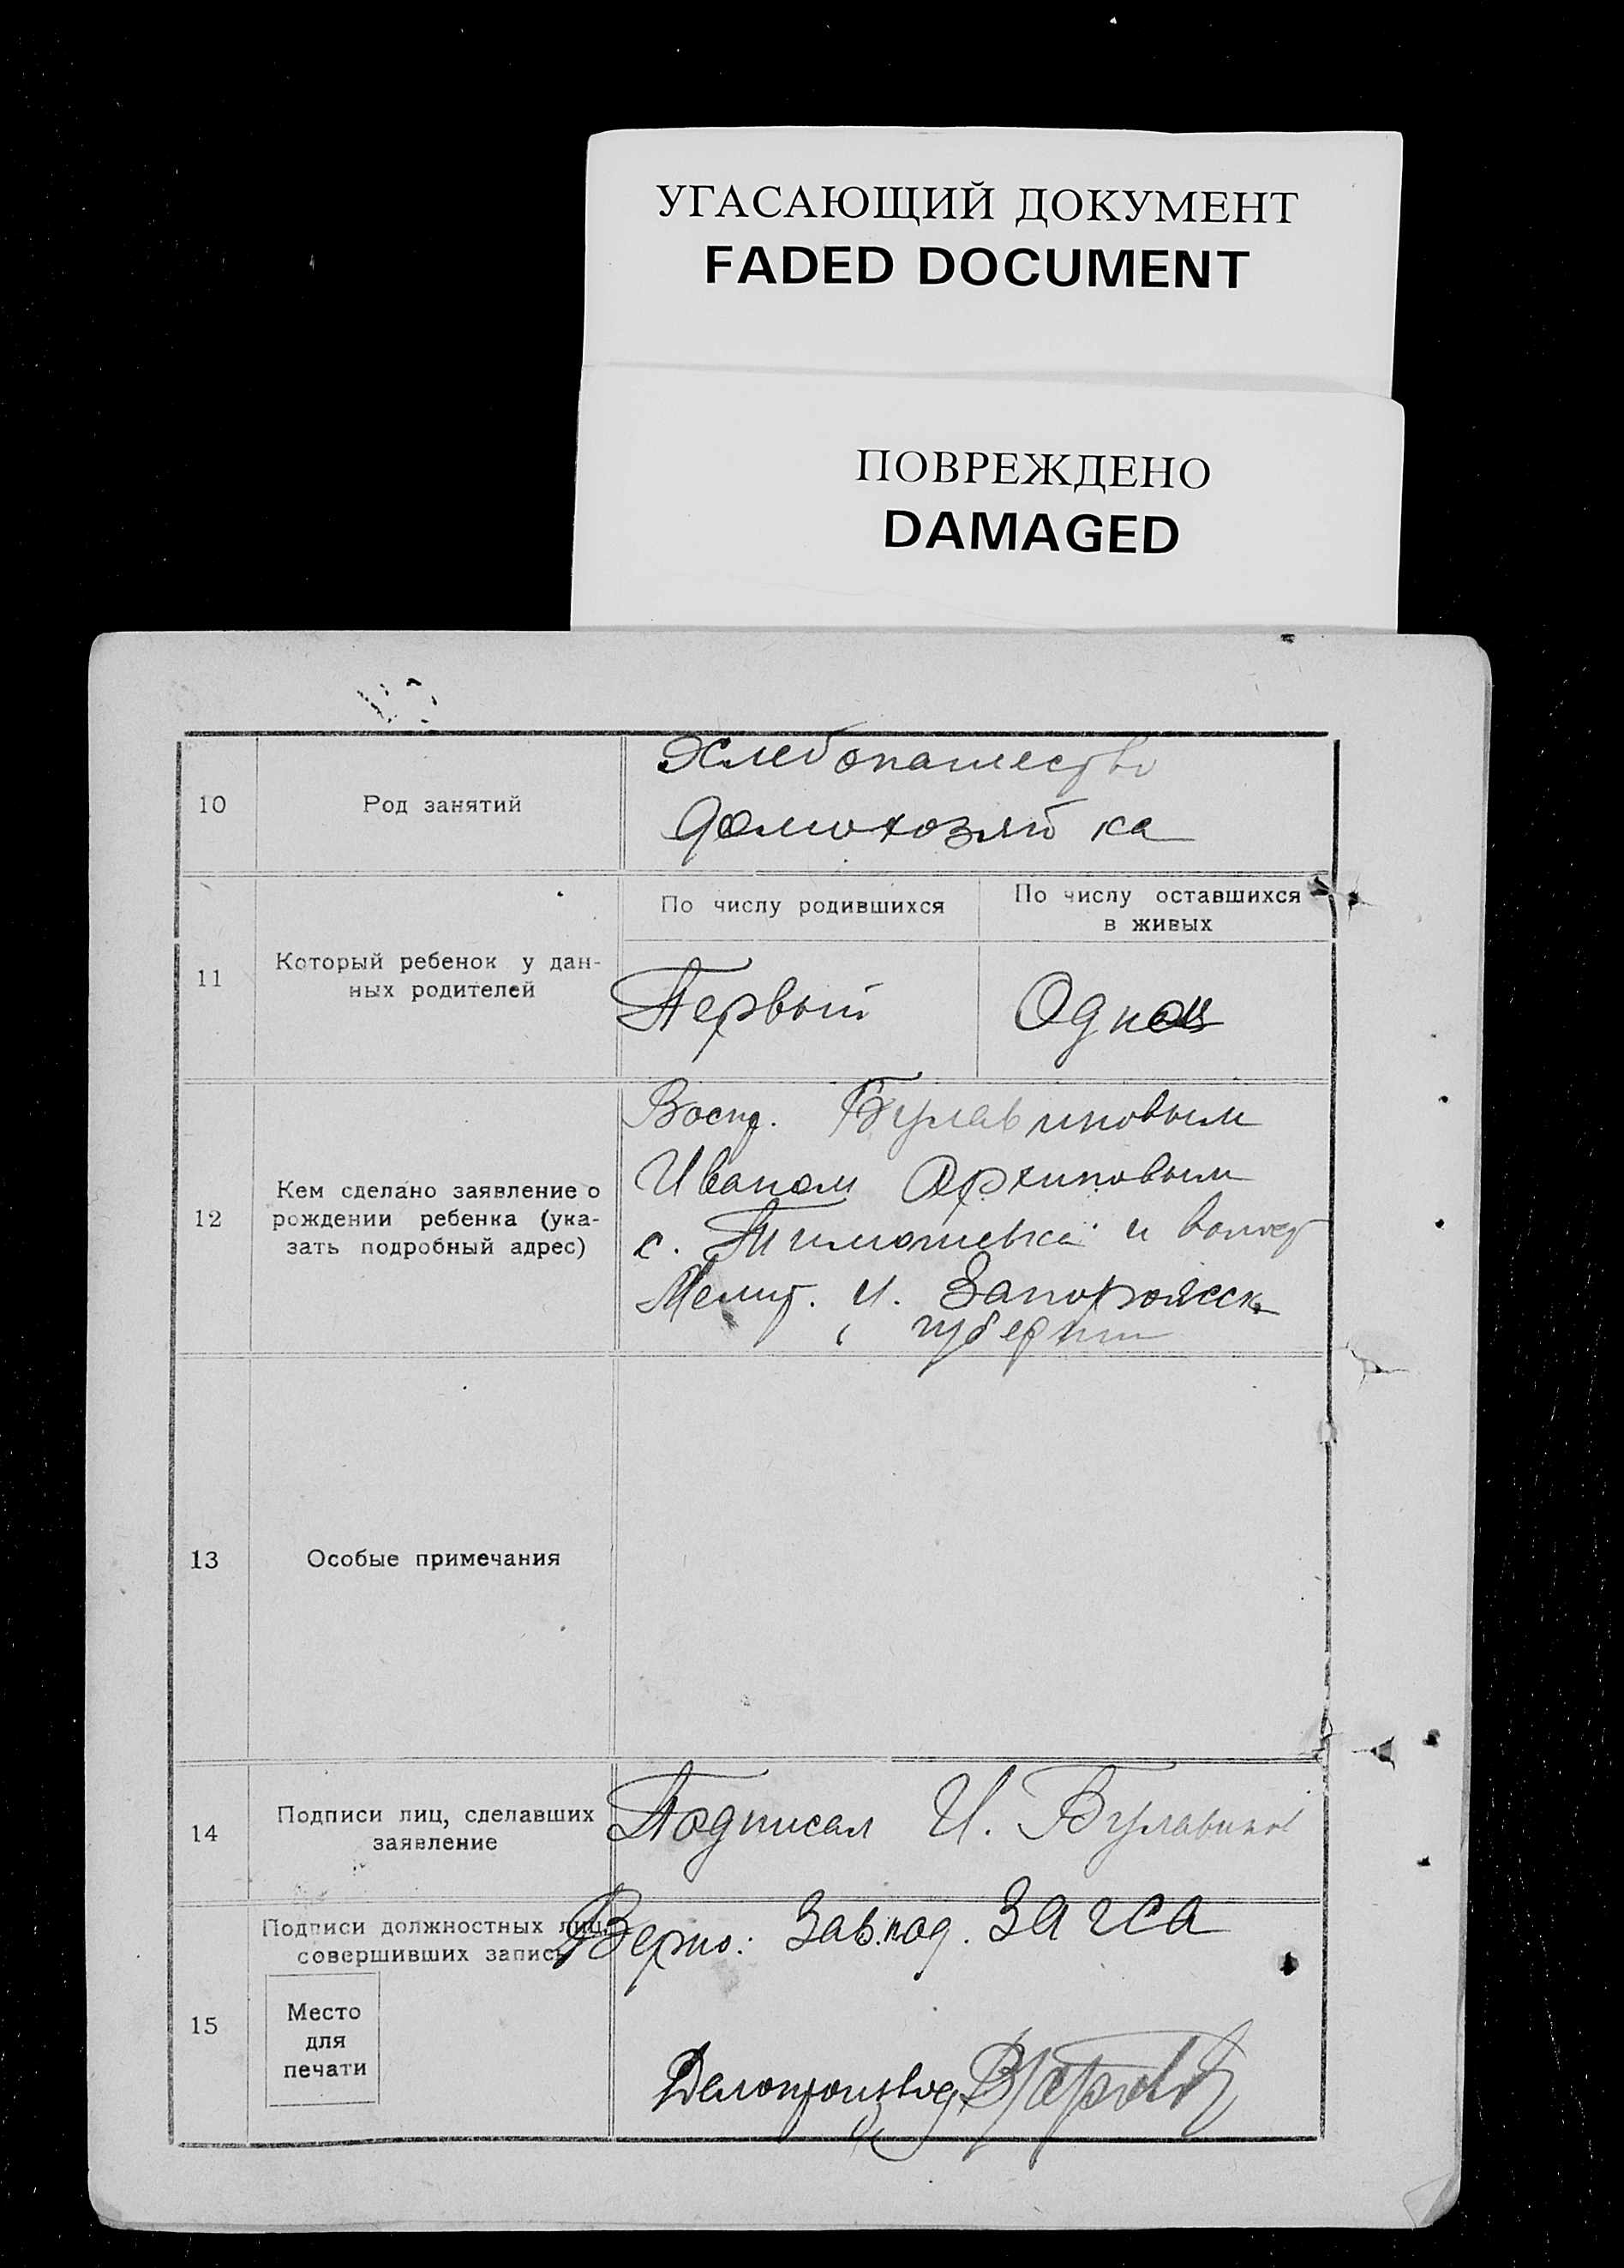 УГАСАЮЩИЙ ДОКУМЕНТ
FADED DOCUMENT
ПОВРЕЖДЕНО
DAMAGED
10
Род занятий
Хлебопашество
Домохозяйка
11
Который ребенок у дан-
ных родителей
По числу родившихся
По числу оставшихся
в живых
Первый
Один
12
Кем сделано заявление о
рождении ребенка (ука-
зать подробный адрес)
Булавиновым
Иваном Архиповым
с. Тимошевка и
Мелит. Запорожск
губернии
13
Особые примечания
14
Подписи лиц, сделавших
заявление
Подписал И. Булавинов
15
Подписи должностных лиц,
совершивших запись
Верно: Зав.под. ЗАГСА
Место
для
печати
Делопроизвод